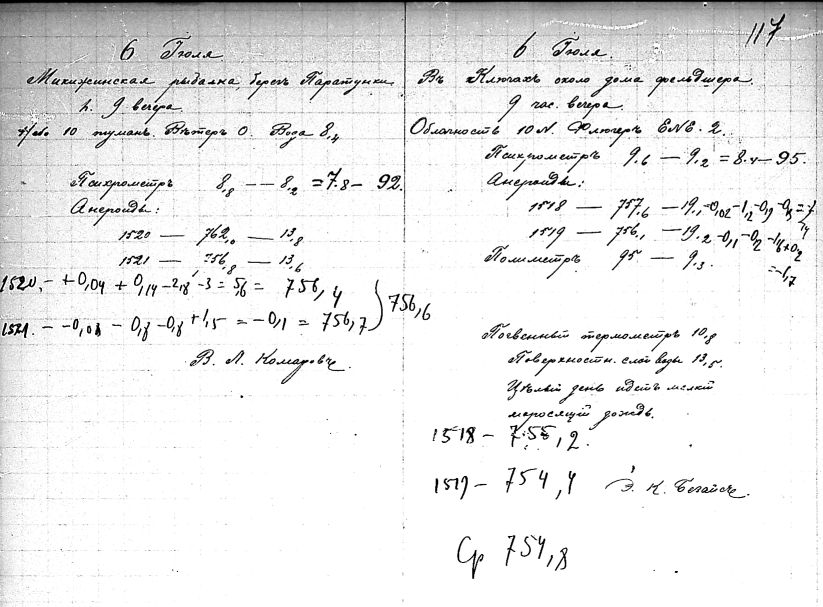 117
6 Іюля
Микижинская рыбалка, берегъ Паратунки
9 вечера
10 туманъ. Вѣтеръ 0. Вода 8,4
Психрометръ 8,8 — 8,2 = 7.8 — 92.
Анероиды:
1520 — 762,0 — 13,8
1521 — 756,8 — 13,6
1520. — +0,04 + 0,14 — 2,8 — 3 = 5,6 = 756,4
1521. — -0,08 — 0,8 -0,8 +1,5 = -0,1 = 756,7 } 756,6
В. Л. Комаровъ.
6 Іюля.
Въ Ключахъ около дома фельдшера.
9 час. вечера.
Облачность 10 N. Флюгеръ ENE. 2.
Психрометръ 9,6 — 9,2 = 8.4 — 95.
Анероиды:
1518 — 757,6 — 19,1 -0,02 -1,2 -0,9
1519 — 756,1 — 19.2 -0,1 -0,2 -1,6 +0,2
Полиметръ 95 — 9,3. = -1,7
Почвенный термометръ 10,8
Поверхностн. слой воды 13,5.
Цѣлый день идетъ мелкій
моросящій дождь.
1518 — 755,2.
1519 — 754,4 Э. К. Безайсъ.
Ср 754,8